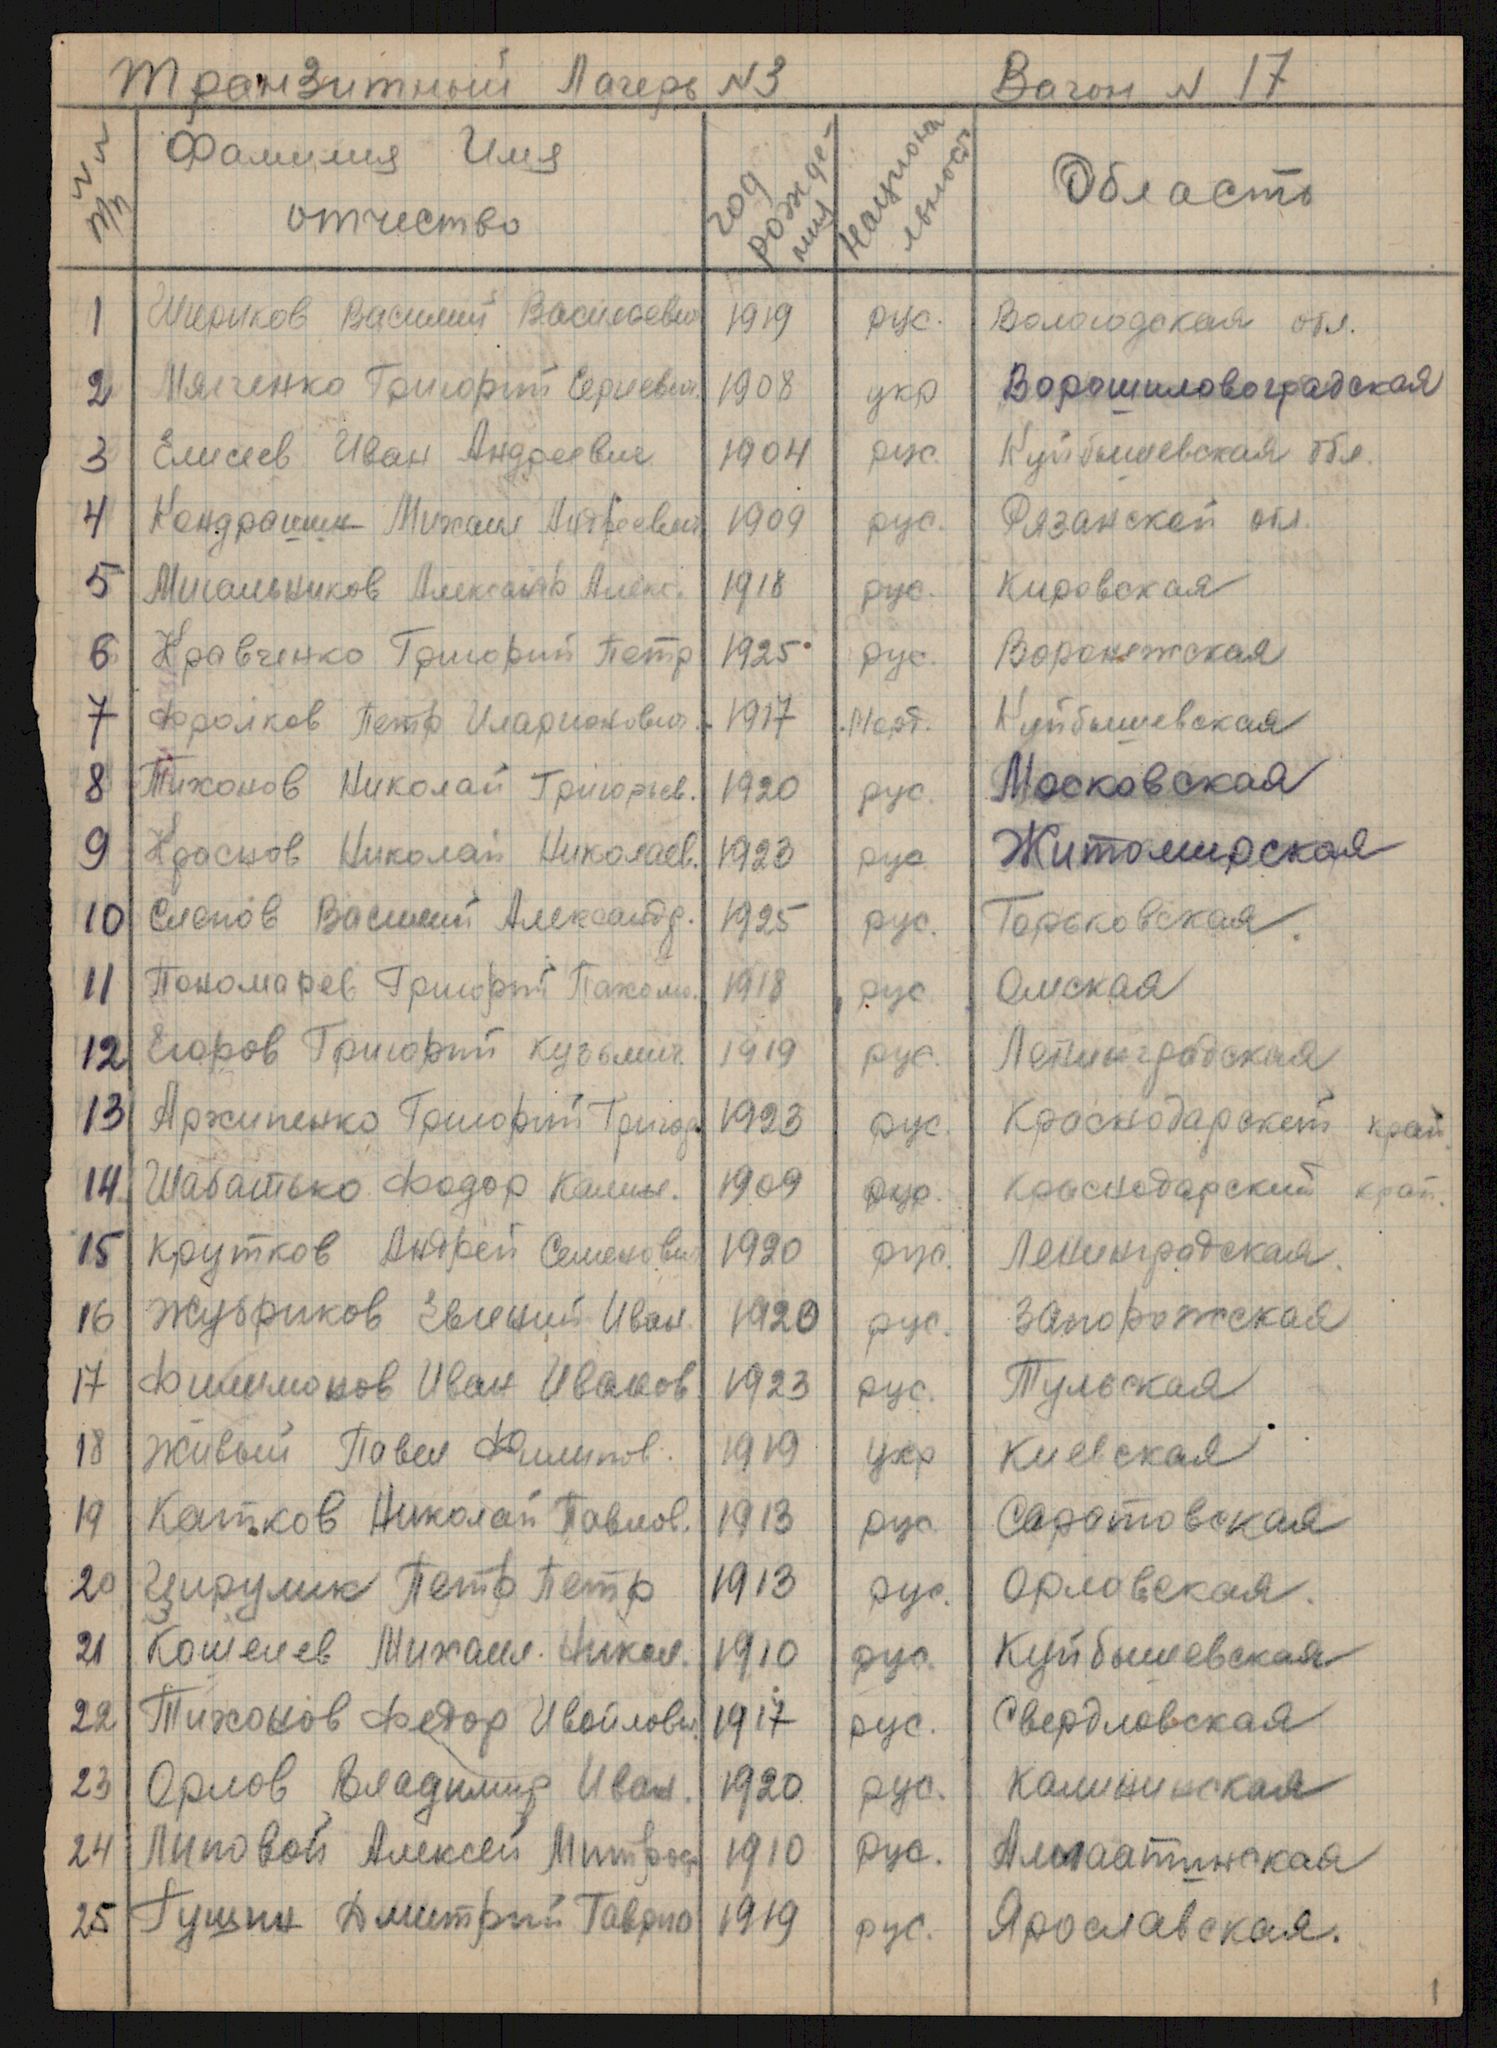 Транзитный Лагерь N3 Вагон N 17
NN п/п Фамилия Имя отчество год рождения Национальность Область
1 Шириков Василий Васильевич 1919 рус. Вологодская обл.
2 Мягченко Григорий Сергеевич. 1908 укр Ворошиловоградская
3 Елисеев Иван Андреевич 1904 рус. Куйбышевская обл.
4 Кондрашин Михаил Андреевич 1909 рус. Рязанской обл.
5 Мигальников Александр Алекс. 1918 рус. Кировская
6 Кравченко Григорий Петр 1925 рус. Воронежская
7 Фролков Петр Иларионович. 1917 Морд. Куйбышевская
8 Тихонов Николай Григорьев. 1920 рус. Московская
9 Краснов Николай Николаев. 1923 рус Житомирская
10 Слепов Василий Александр. 1925 рус. Горьковская.
11 Пономарев Григорий Пахом. 1918 рус Омская
12 Егоров Григорий Кузьмич 1919 рус. Ленинградская
13 Архипенко Григорий Григор. 1923 рус. Краснодарский край.
14 Шабатько Фодор Калин. 1909 рус. Краснодарский край.
15 Крутков Андрей Семенович 1920 рус. Ленинградская.
16 Жубриков Евгений Иван. 1920 рус. Запорожская
17 Филимонов Иван Иванов. 1923 рус. Тульская
18 Живый Павел Филипов. 1919 укр Киевская
19 Катков Николай Павлов. 1913 рус Саратовская
20 Цирулик Петр Петр 1913 рус. Орловская.
21 Кошелев Михаил. Никол. 1910 рус. Куйбышевская
22 Тихонов Федор 1917 рус. Свердловская
23 Орлов Владимир Иван. 1920 рус. Калининская
24 Липовой Алексей Митроф 1910 рус. Алмаатинская
25 Гущин Дмитрий Гаврио 1919 рус. Ярославская.
1